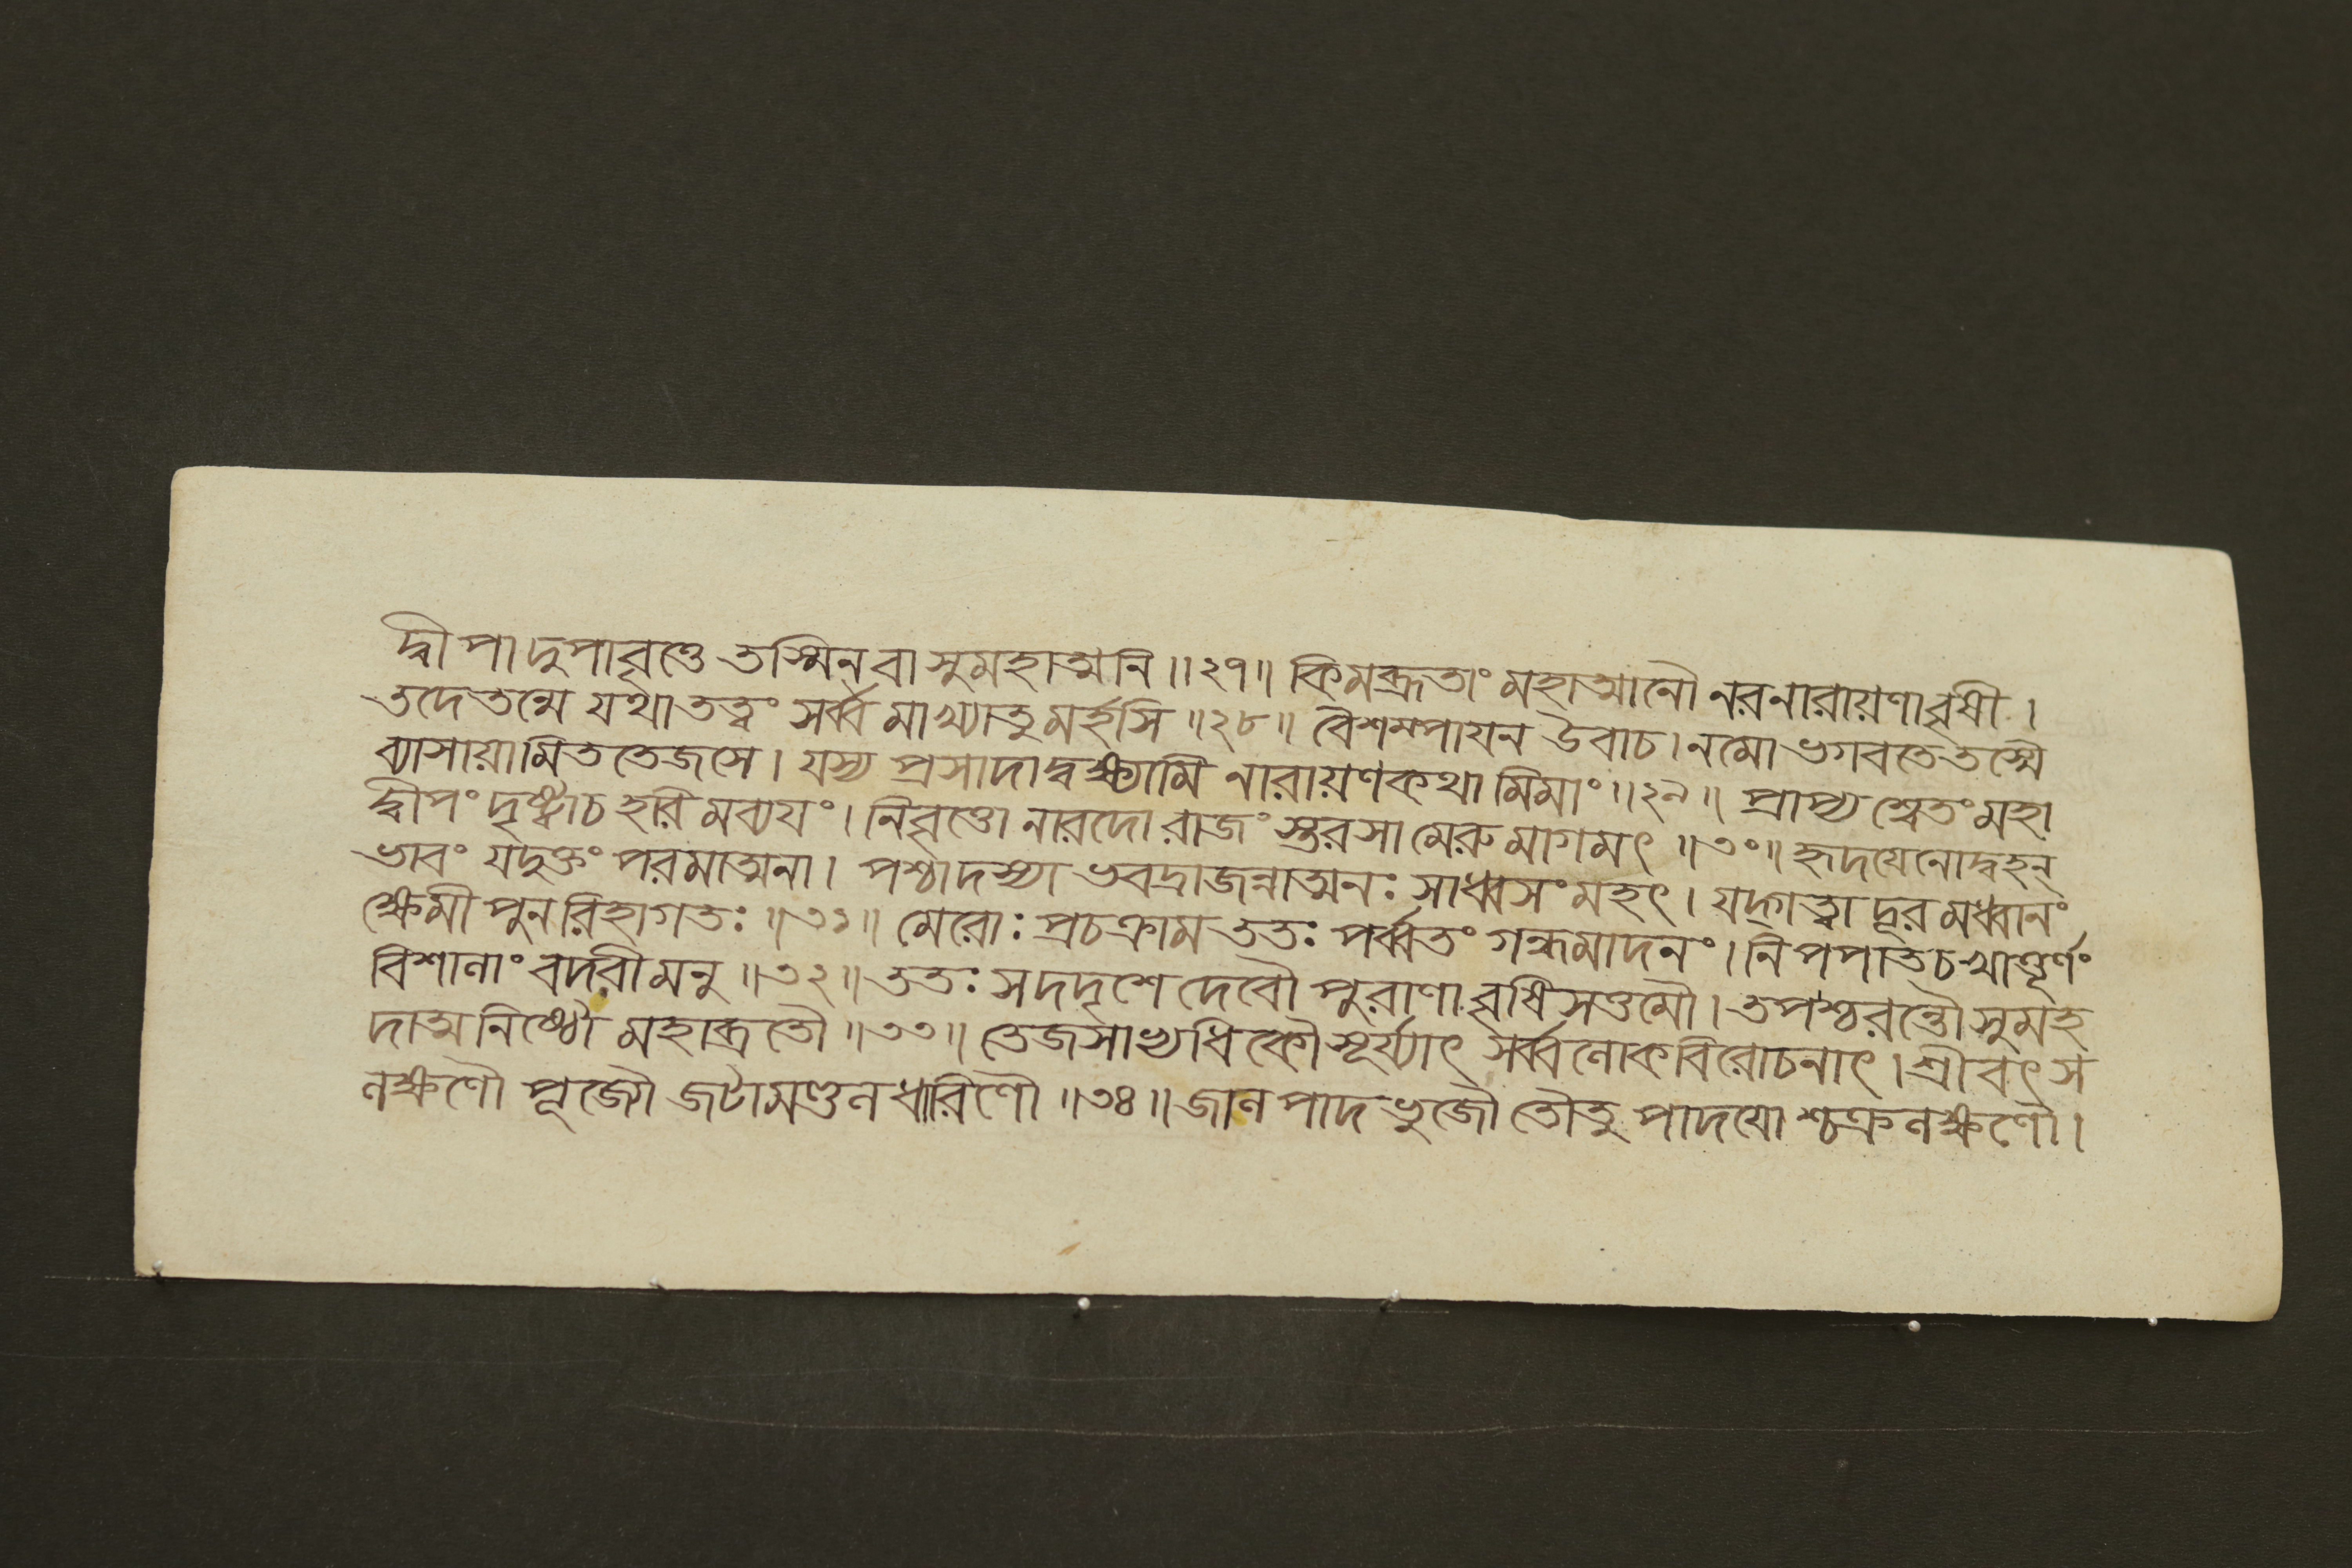 দ্বীপাদুপাবৃত্তে তস্মিন্ বা সুমহাত্মনি ॥২৭॥ কিমব্রূতাং মহাত্মানৌ নরনারায়ণাবৃষী ।
তদেতন্মে যথাতত্ত্বং সর্ব্বমাখ্যাতুমর্হসি ॥২৮॥ বৈশম্পাযন উবাচ । নমো ভগবতে তস্মৈ
ব্যাসায়ামিততেজসে । যস্য প্রসাদাদ্বক্ষ্যামি নারায়ণকথামিমাং ॥২৯॥ প্রাপ্য শ্বেতং মহা
দ্বীপং দৃষ্ট্বাচ হরিমব্যযং । নিবৃত্তো নারদো রাজংস্তরসা মেরুমাগমৎ ॥৩০॥ হৃদযেনোদ্বহন্
ভাবং যদুক্তং পরমাত্মনা । পশ্চাদস্যাভবদ্রাজন্নাত্মনঃ সাধ্বসং মহৎ । যদ্গত্বা দূরমধ্বানং
ক্ষেমী পুনরিহাগতঃ ॥৩১॥ মেরোঃ প্রচক্রাম ততঃ পর্ব্বতং গন্ধমাদনং । নিপপাতচ খাত্তূর্ণং
বিশালাং বদরীমনু ॥৩২॥ ততঃ সদদৃশে দেবৌ পুরাণাবৃষিসত্তমৌ । তপশ্চরন্তৌ সুমহ
দাত্মনিষ্ঠৌ মহাব্রতৌ ॥৩৩॥ তেজসাভ্যধিকৌ সূর্য্যাৎ সর্ব্বলোকবিরোচনাৎ । শ্রীবৎস
লক্ষণৌ পূজ্যৌ জটামণ্ডলধারিণৌ ॥৩৪॥ জালপাদভুজৌ তৌতু পাদযোশ্চক্রলক্ষণৌ ।